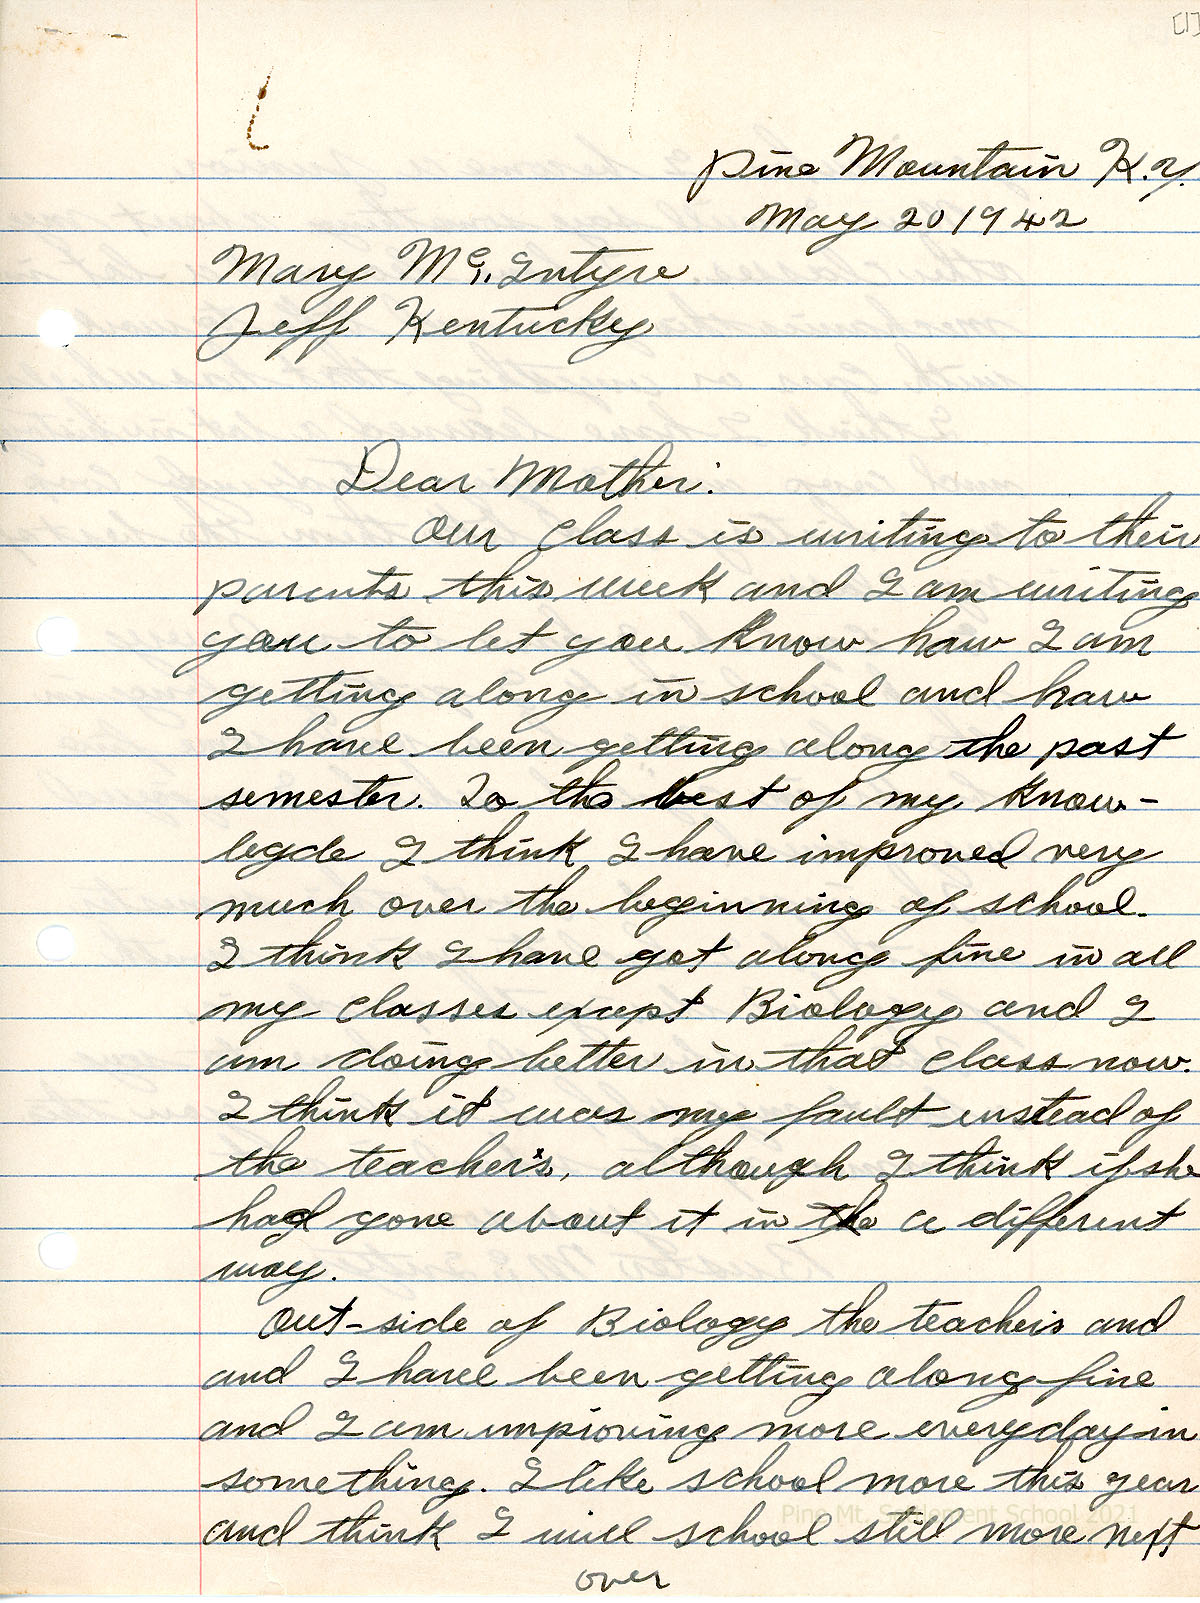 [1]
Pine Mountain K.y.
May 20 1942
Mary Mc. Intyre
Jeff Kentucky
Dear Mother:
Our Class is writing to their
parents this week and I am writing
you to let you Know how I am
getting along in school and how
I have been getting along the past
semester. To the best of my Know-
legde I think I have improved very
much over the beginning of school.
I think I have got along fine in all
my Classes except Biology and I
am doing better in that Class now.
I think it was my fault instead of
the teacher's, although I think if she
had gone about it in the a different
way.
Out-side of Biology the teachers and
and I have been getting along fine
and I am improving more everyday in
something. I like school more this year
and think I will school still more next
over
Pine Mt. Settlement School 2021